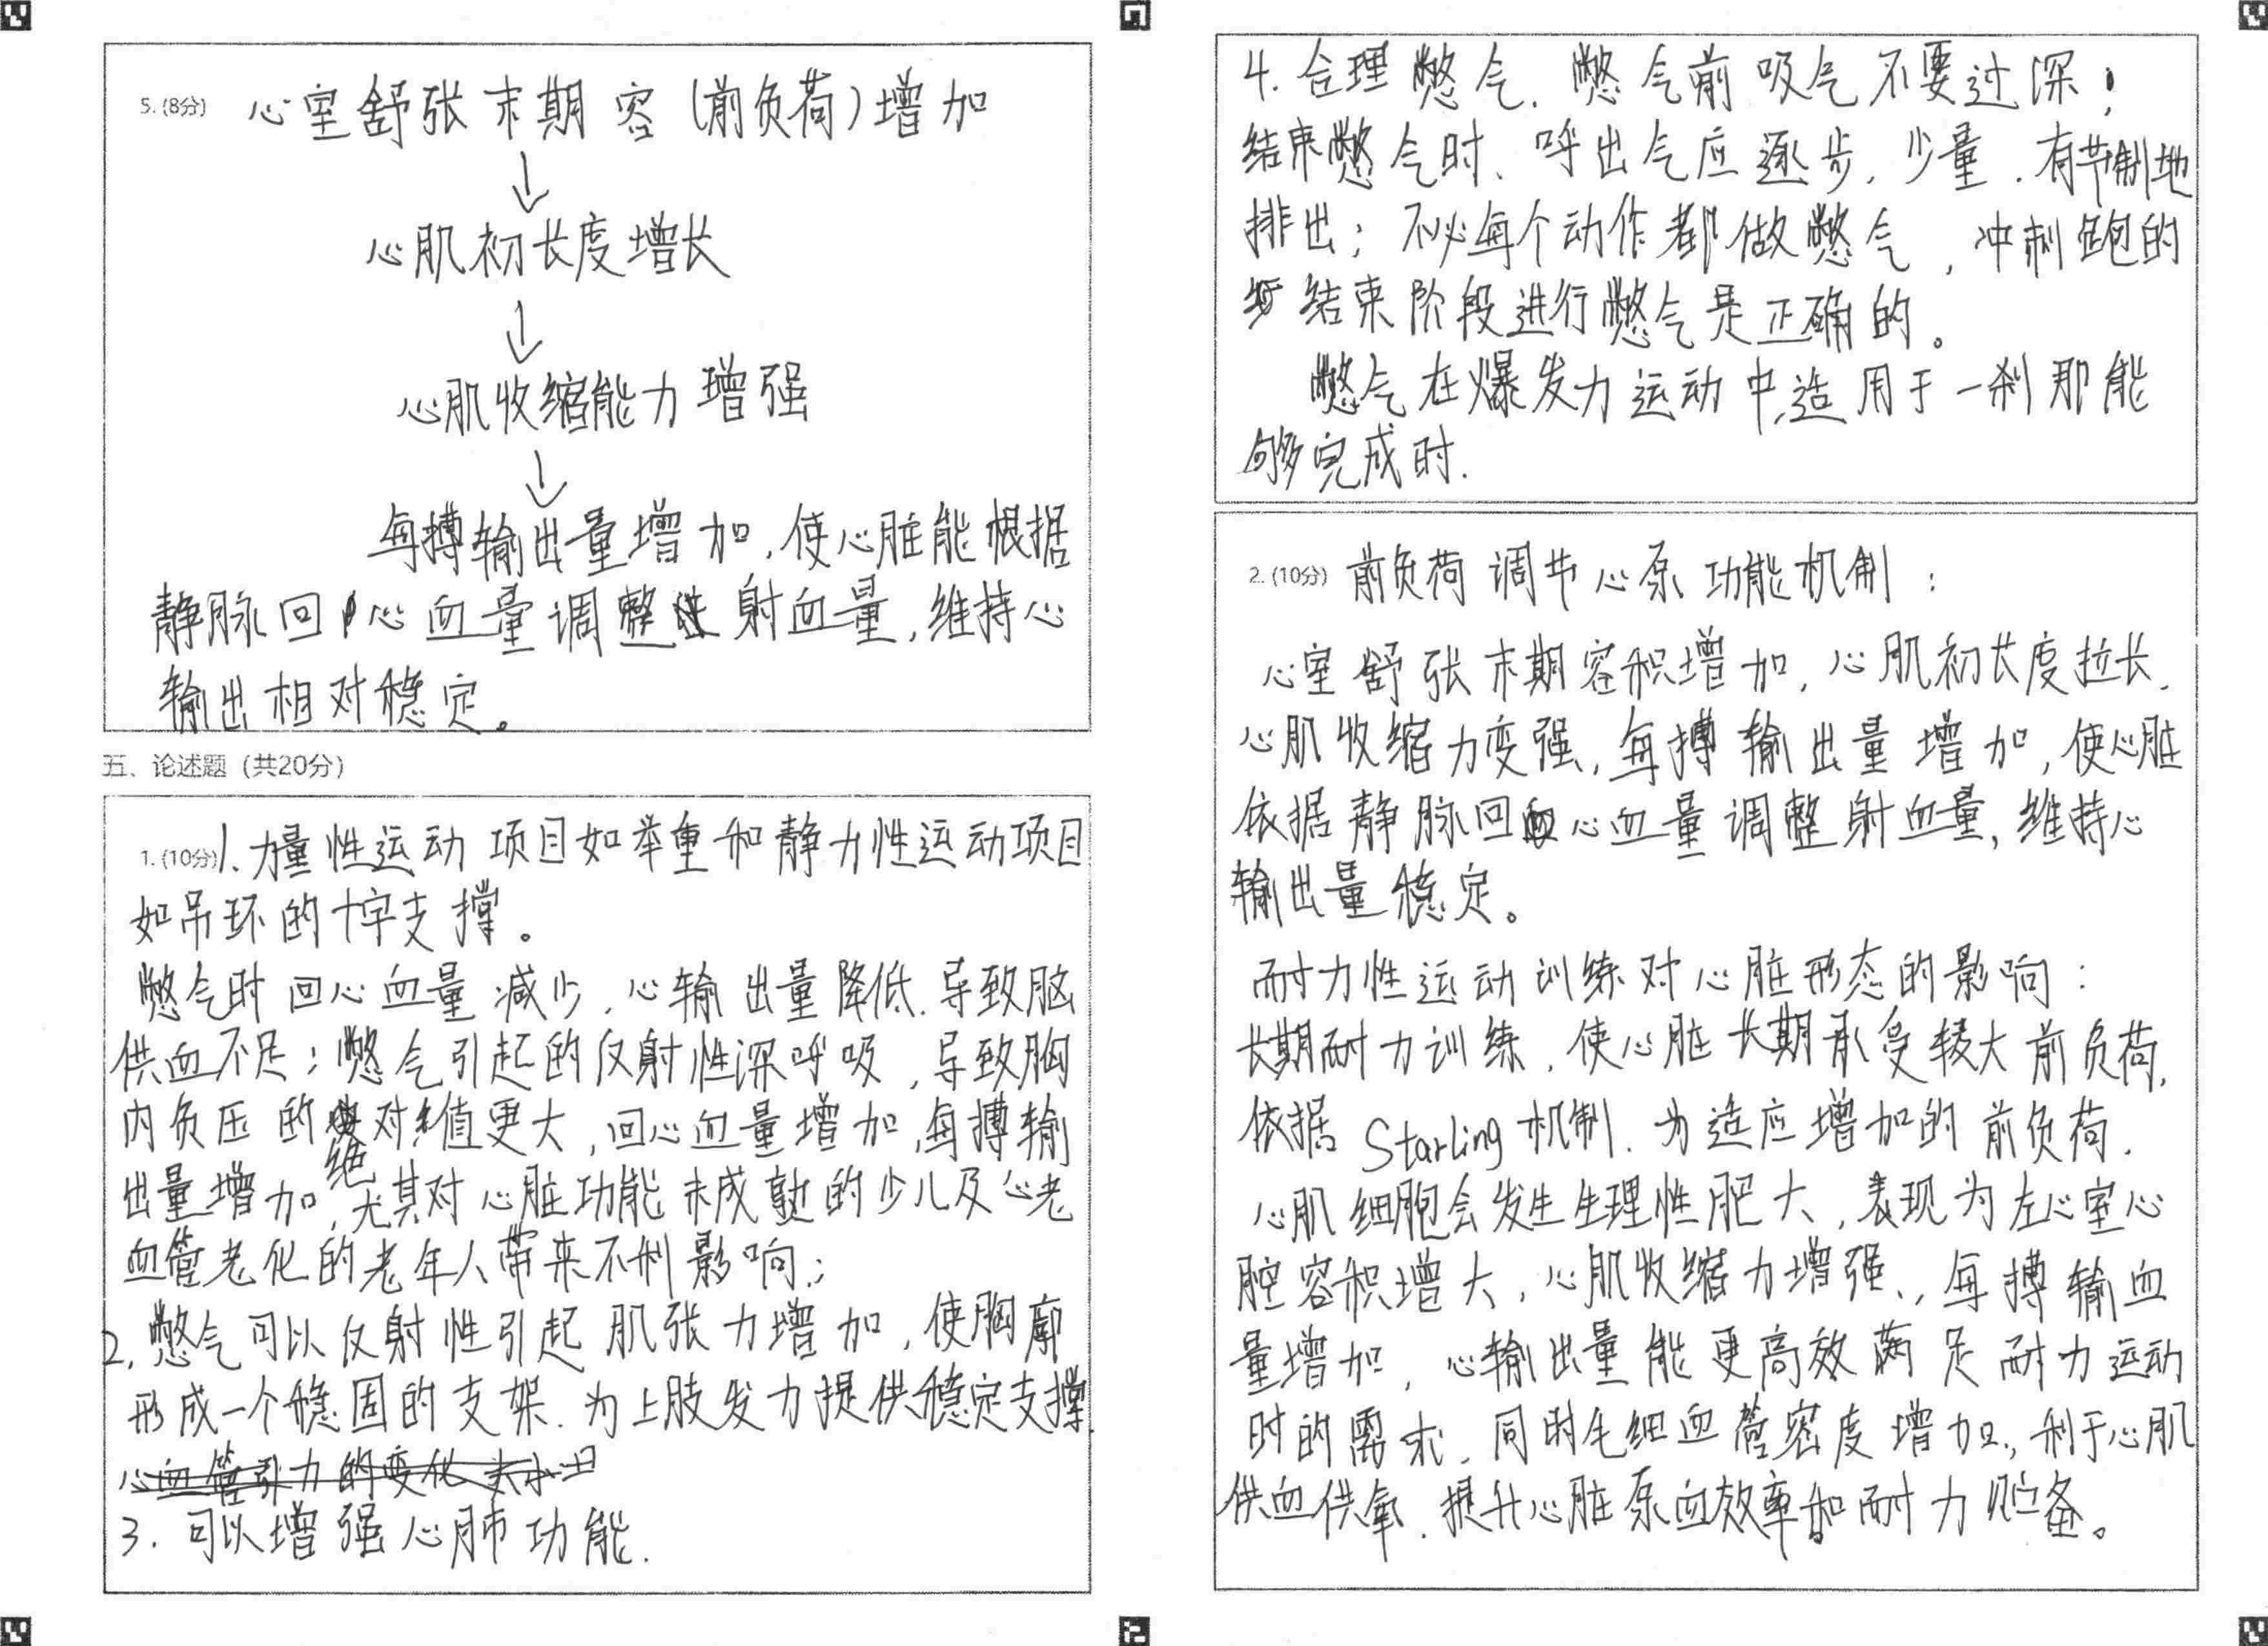 5. (8分) 心室舒张末期容(前负荷)增加
↓
心肌初长度增长
↓
心肌收缩能力增强
↓
每搏输出量增加,使心脏能根据
静脉回心血量调整射血量,维持心
输出相对稳定。
五、论述题 (共20分)
1. (10分) 1.力量性运动项目如举重和静力性运动项目
如吊环的十字支撑。
憋气时回心血量减少,心输出量降低.导致脑
供血不足;憋气引起的反射性深呼吸,导致胸
内负压的绝对值更大,回心血量增加,每搏输
出量增加,尤其对心脏功能未成熟的少儿及心老
血管老化的老年人带来不利影响;
2.憋气可以反射性引起肌张力增加,使胸廓
形成一个稳固的支架.为上肢发力提供稳定支撑.
3.可以增强心肺功能.
4.合理憋气.憋气前吸气不要过深;
结束憋气时、呼出气应逐步、少量.有节制地
排出;不必每个动作都做憋气,冲刺跑的
结束阶段进行憋气是正确的。
憋气在爆发力运动中,适用于一刹那能
够完成时.
2. (10分) 前负荷调节心泵功能机制:
心室舒张末期容积增加,心肌初长度拉长.
心肌收缩力变强,每搏输出量增加,使心脏
依据静脉回心血量调整射血量,维持心
输出量稳定。
耐力性运动训练对心脏形态的影响:
长期耐力训练,使心脏长期承受较大前负荷,
依据Starling机制.为适应增加的前负荷.
心肌细胞会发生生理性肥大,表现为左心室心
腔容积增大,心肌收缩力增强,每搏输血
量增加,心输出量能更高效满足耐力运动
时的需求.同时毛细血管密度增加,利于心肌
供血供氧.提升心脏泵血效率和耐力贮备。